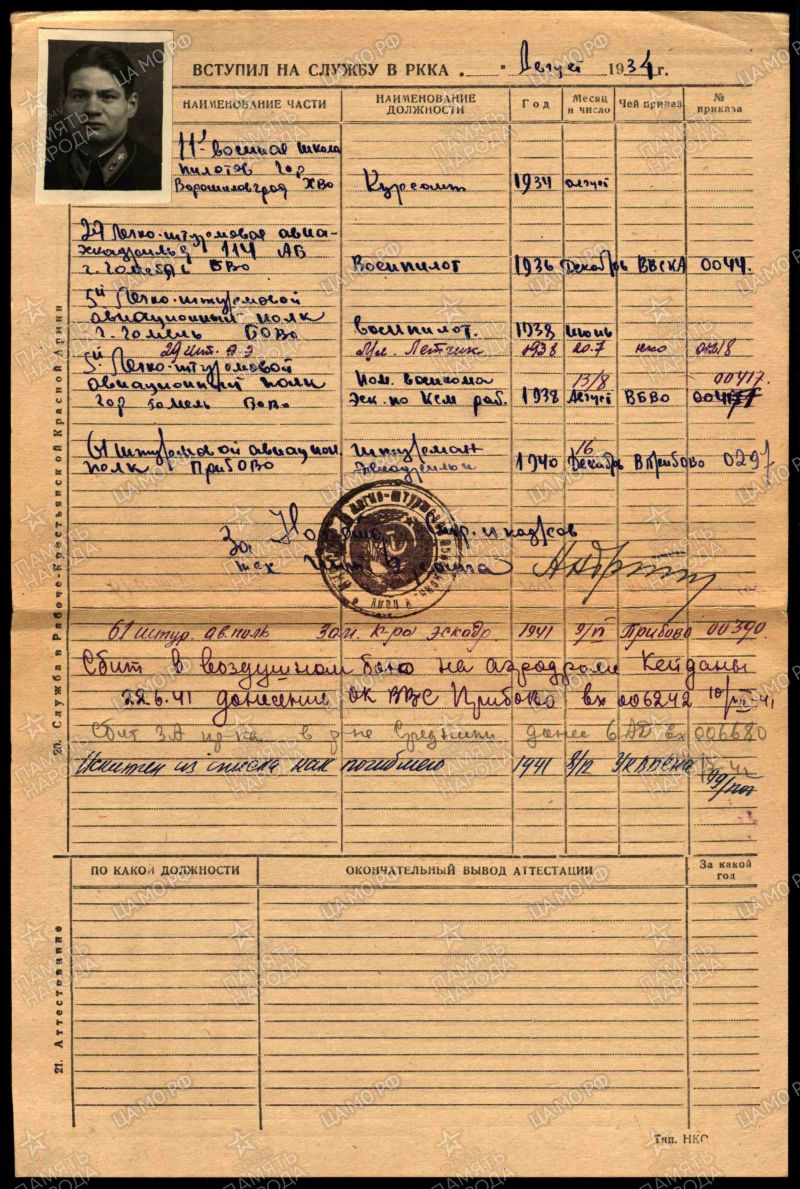 ВСТУПИЛ НА СЛУЖБУ В РККА . " Август 1934 г.
НАИМЕНОВАНИЕ ЧАСТИ НАИМЕНОВАНИЕ ДОЛЖНОСТИ Год Месяц и число Чей приказ № приказа
11я военная школа
пилотов Гор
Ворошиловград ХВО Курсант 1934 август
29 Легко-штурмовая авиа-
эскадрилья 114 АБ
г. Гомель БВО Воепилот 1936 Декабрь ВВСКА 0044.
5й Легко-штурмовой
авиационный полк
г. Гомель БОВО Воепилот. 1938 Июнь
29 шт. А-Э Мл. Летчик 1938 20.7 нко 01218
5й Легко-штурмовой
авиационный полк Пом. военкома 13/8 00417.
Гор Гомель БОВО Эск. по Ксм раб. 1938 Август ВБВО
61 штурмовой авиацион. штурман 16
полк ПрибОВО эскадрильи 1940 Декабрь ВПрибово 0297
За
61 штур. ав. полк Зам. к-ра эскадр. 1941 9/VI Прибово 00390.
Сбит в воздушном бою на аэродроме Кейданы
22.6.41 донесение ОК ВВС Прибово вх 006242
Сбит ЗА пр-ка в р-не донес 6 АД вх 006680
Исключен из списка как погибшего 1941 8/12
20. Служба в Рабоче-Крестьянской Красной Армии
ПО КАКОЙ ДОЛЖНОСТИ ОКОНЧАТЕЛЬНЫЙ ВЫВОД АТТЕСТАЦИИ За какой год
21. Аттестование
Тип. НКО
ЦАМО.РФ
ПАМЯТЬ НАРОДА